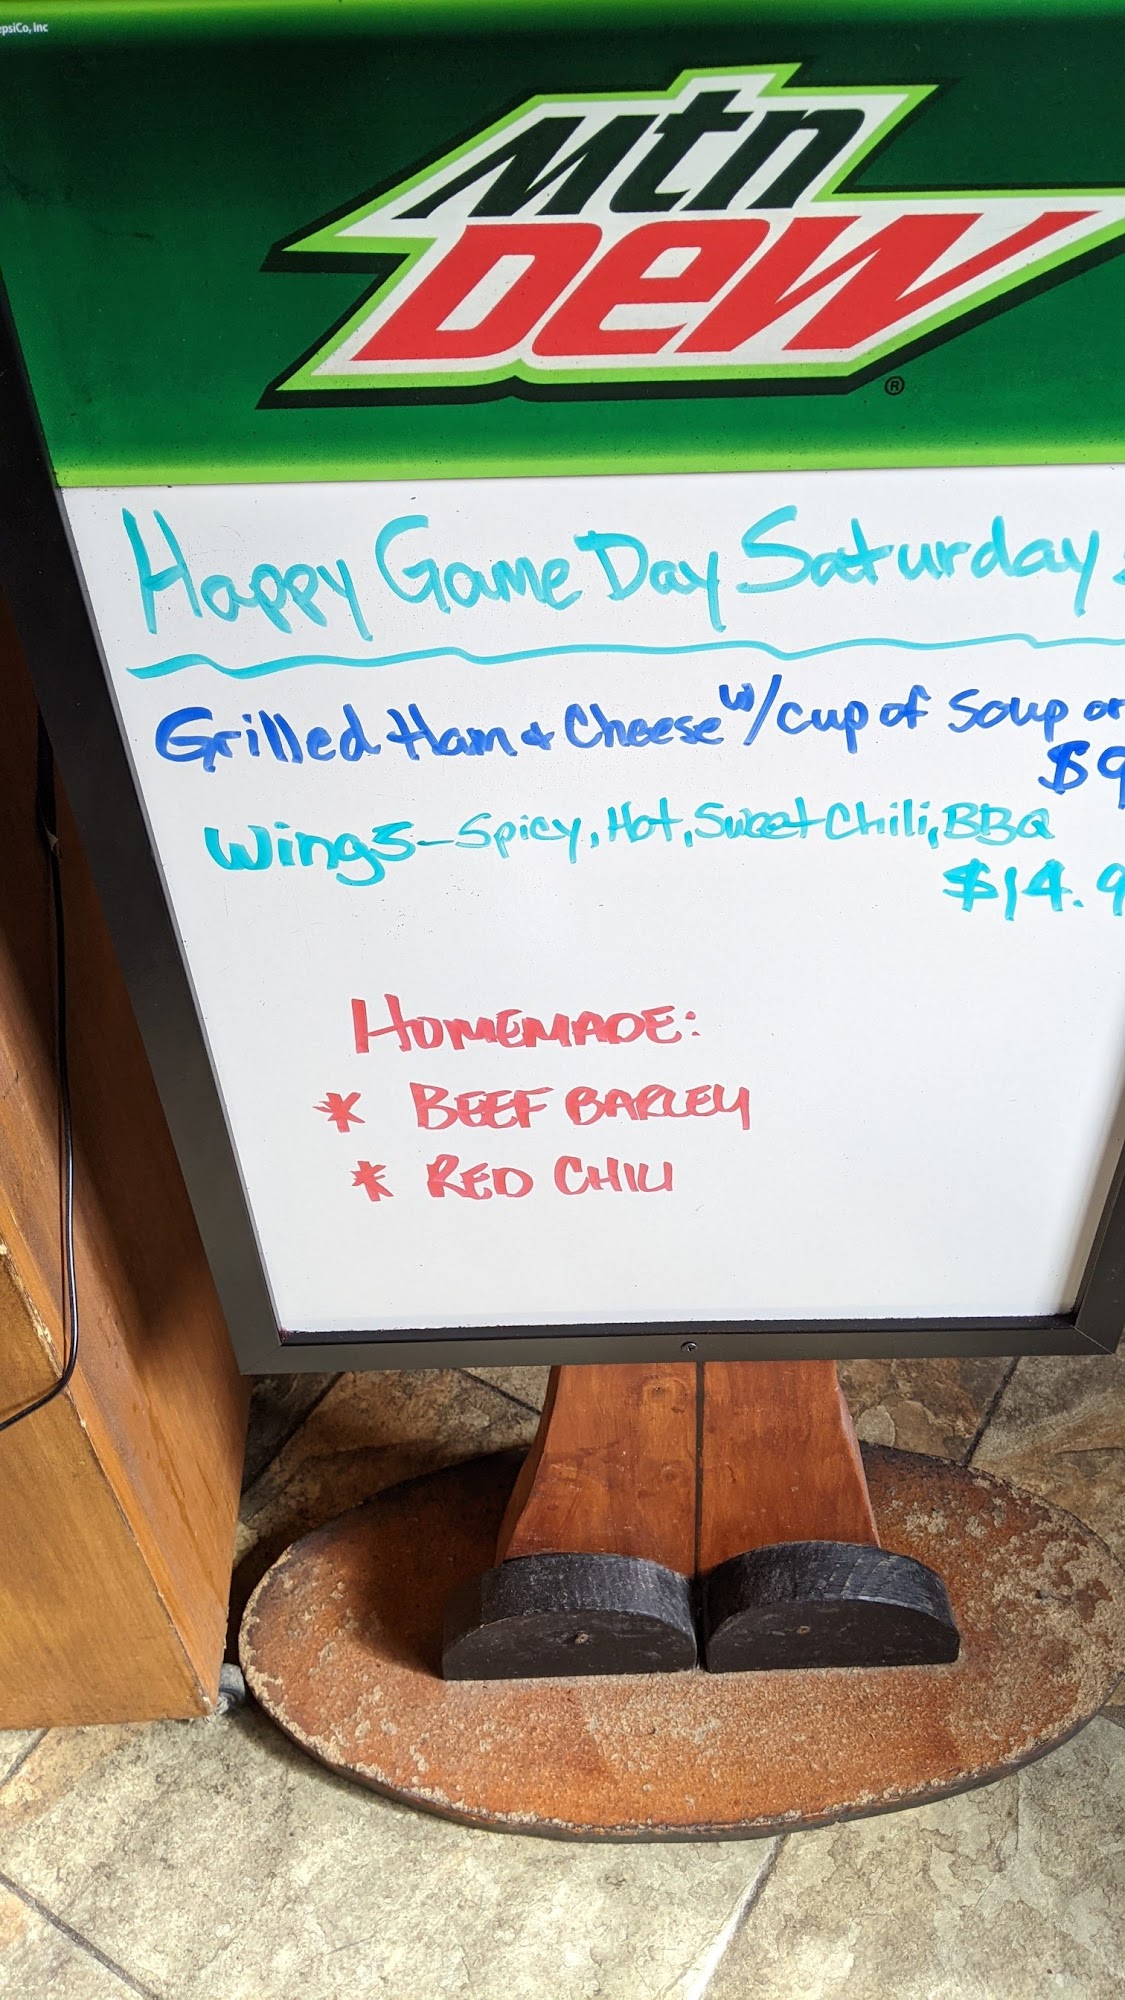 epsiCo, Inc
Mtn
Dew
®
Happy Game Day Saturday
Grilled Ham & Cheese w/ cup of Soup or
$9
Wings - Spicy, Hot, Sweet Chili, BBQ
$14.9
HOMEMADE:
* BEEF BARLEY
* RED CHILI